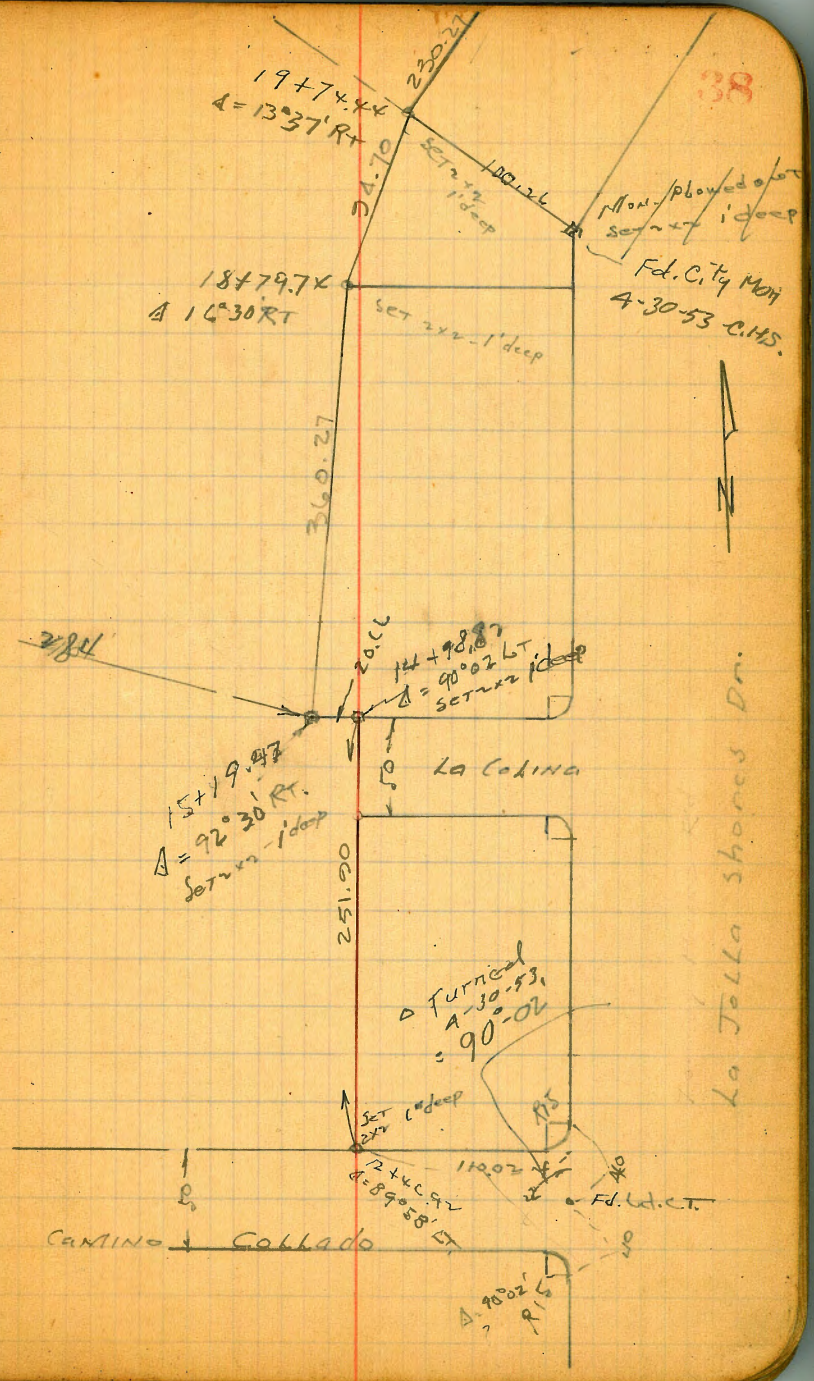 38
230.27
19+74.44
Δ = 13°37' RT
94.70
SET 2x2
1' deep
100.26
Mon. plowed out
set 2x2 1' deep
Fd. City Mon
4-30-53 C.H.S.
18+79.74
Δ 16°30' RT
SET 2x2 - 1' deep
360.27
N
20.66
14+98.82
Δ = 90°02' LT
SET 2x2 1' deep
50
La Colina
15+19.48
Δ = 92°30' RT.
Set 2x2 - 1' deep
251.90
La Jolla Shores Dr.
Δ Turned
4-30-53,
= 90°-02
Set
2x2 1' deep
R15
110.02
12+46.92
Δ = 89°58' LT.
40
Fd. Ld. & T.
50
CAMINO COLLADO
40
Δ = 90°02'
R15